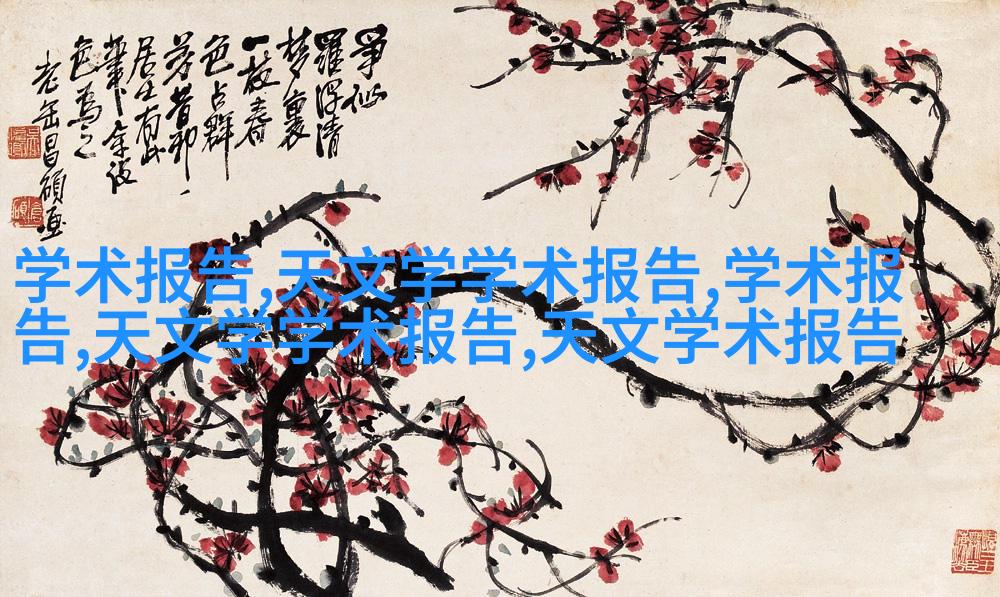 争似
羅浮清
梦裏
一枝春
色占群
芳昔邪
居士有此
筆
色為之
老缶昌碩画
学术报告,天文学学术报告,学术报
告,天文学学术报告,天文学术报告